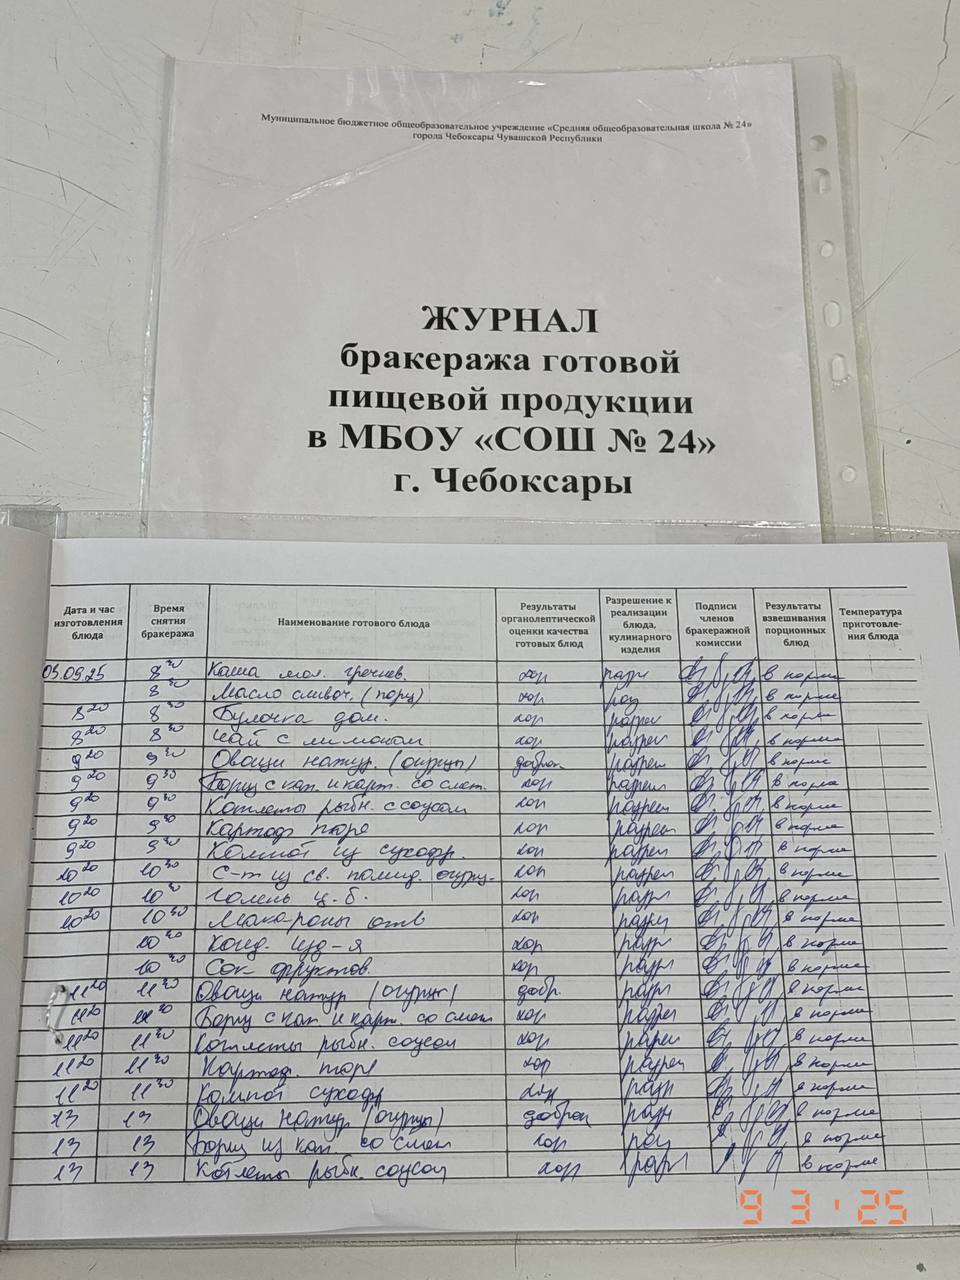 Муниципальное бюджетное общеобразовательное учреждение «Средняя общеобразовательная школа № 24»
города Чебоксары Чувашской Республики
ЖУРНАЛ
бракеража готовой
пищевой продукции
в МБОУ «СОШ № 24»
г. Чебоксары
Дата и час изготовления блюда Время снятия бракеража Наименование готового блюда Результаты органолептической оценки качества готовых блюд Разрешение к реализации блюда, кулинарного изделия Подписи членов бракеражной комиссии Результаты взвешивания порционных блюд Температура приготовле-ния блюда
03.09.25 8 30 Каша мол. гречнев. хор разр в норме
8 30 Масло сливоч. (порц) хор раз в норме
8 20 8 30 Булочка дом. хор разреш в норме
8 20 8 30 Чай с лимоном хор разреш в норме
9 20 9 30 Овощи натур. (огурцы) доброк разреш в норме
9 20 9 30 Борщ с кап. и карт. со смет. хор разреш в норме
9 20 9 30 Котлеты рыбн. с соусом хор разреш в норме
9 20 9 30 Картоф пюре хор разреш в норме
9 20 9 30 Компот из сухофр. хор разреш в норме
10 20 10 30 С-т из св. помид. огурц. хор разреш в норме
10 20 10 30 Голень ц.б. хор разр в норме
10 20 10 30 Макароны отв хор разреш в норме
10 30 Конд. изд-я хор разр в норме
10 30 Сок фруктов. хор разр в норме
11 20 11 30 Овощи натур (огурцы) добр. разр в норме
11 20 11 30 Борщ с кап и карт. со смет хор разреш в норме
11 20 11 30 Котлеты рыбн. соусом хор разреш в норме
11 20 11 30 Картоф. пюре хор разреш в норме
11 20 11 30 Компот сухофр хор разр в норме
13 13 Овощи натур (огурцы) доброк разр в норме
13 13 Борщ из кап. со смет хор раз в норме
13 13 Котлеты рыбн. соусом хор разр в норме
9 3 ' 25